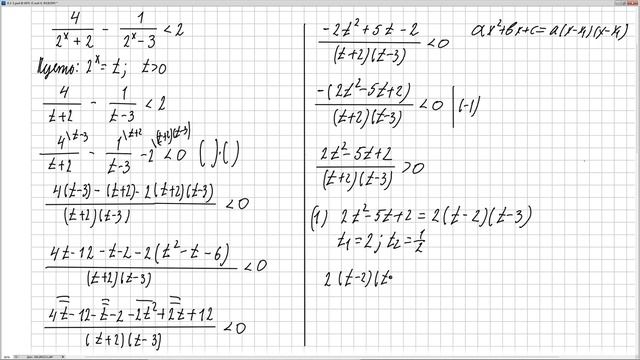 4/(2^x+2) - 1/(2^x-3) < 2
Пусть: 2^x = t; t>0
4/(t+2) - 1/(t-3) < 2
4\t-3/(t+2) - 1\t+2/(t-3) - 2\(t+2)(t-3) < 0 ( )·( )
(4(t-3) - (t+2) - 2(t+2)(t-3))/((t+2)(t-3)) < 0
(4t-12-t-2-2(t²-t-6))/((t+2)(t-3)) < 0
(4t-12-t-2-2t²+2t+12)/((t+2)(t-3)) < 0
(-2t²+5t-2)/((t+2)(t-3)) < 0
ax²+bx+c=a(x-x₁)(x-x₁)
-(2t²-5t+2)/((t+2)(t-3)) < 0 |(-1)
(2t²-5t+2)/((t+2)(t-3)) > 0
(1) 2t²-5t+2 = 2(t-2)(t-3)
t₁=2; t₂=1/2
2(t-2)(t